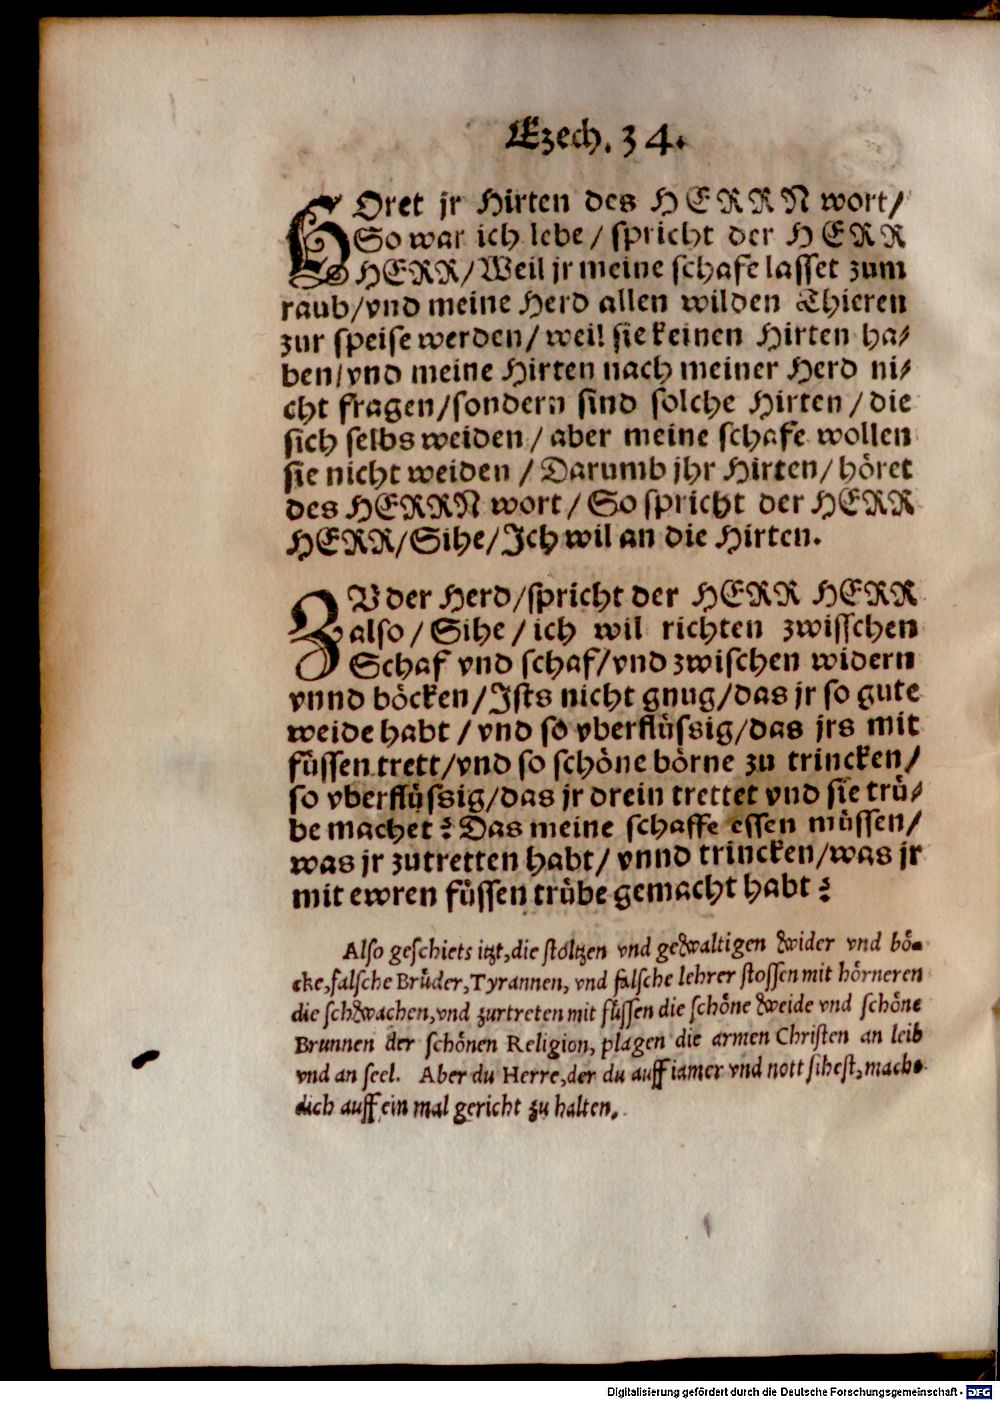 Ezech. 34.
HOret jr Hirten des HERRN wort/
So war ich lebe/ spricht der HERR
HERR/Weil jr meine schafe lasset zum
raub/vnd meine Herd allen wilden Thieren
zur speise werden/ weil sie keinen Hirten ha⸗
ben/vnd meine Hirten nach meiner Herd ni⸗
cht fragen/sondern sind solche Hirten/die
sich selbs weiden/ aber meine schafe wollen
sie nicht weiden / Darumb jhr Hirten/ höret
des HERRN wort/ So spricht der HERR
HERR/Sihe/Ich wil an die Hirten.
ZV der Herd/spricht der HERR HERR
also/ Sihe/ich wil richten zwisschen
Schaf vnd schaf/vnd zwischen widern
vnnd böcken/Ists nicht gnug/das jr so gute
weide habt / vnd so vberflüssig/das jrs mit
füssen trett/vnd so schöne börne zu trincken/
so vberflüssig/das jr drein trettet vnd sie trü⸗
be machet? Das meine schaffe essen müssen/
was jr zutretten habt/ vnnd trincken/was jr
mit ewren füssen trübe gemacht habt?
Also geschiets itzt,die stoltzen vnd gewaltigen wider vnd bö⸗
cke,falsche Brüder,Tyrannen, vnd falsche lehrer stossen mit hörneren
die schwachen,vnd zurtreten mit füssen die schöne weide vnd schöne
Brunnen der schönen Religion, plagen die armen Christen an leib
vnd an seel. Aber du Herre,der du auff iamer vnd nott sihest,mache
dich auff ein mal gericht zu halten.
Digitalisierung gefördert durch die Deutsche Forschungsgemeinschaft - DFG